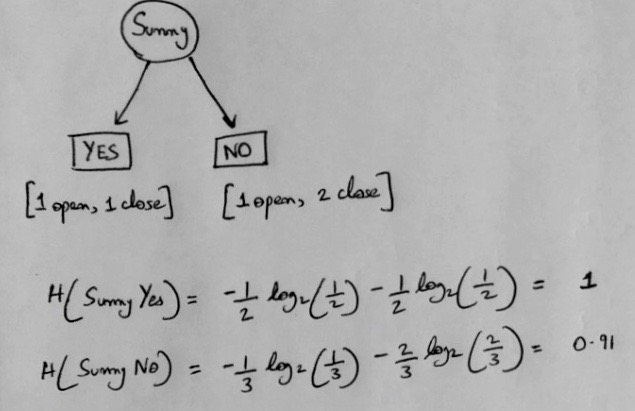 Sunny
YES NO
[1 open, 1 close] [1 open, 2 close]
H(Sunny Yes) = -1/2 log₂(1/2) - 1/2 log₂(1/2) = 1
H(Sunny No) = -1/3 log₂(1/3) - 2/3 log₂(2/3) = 0.91